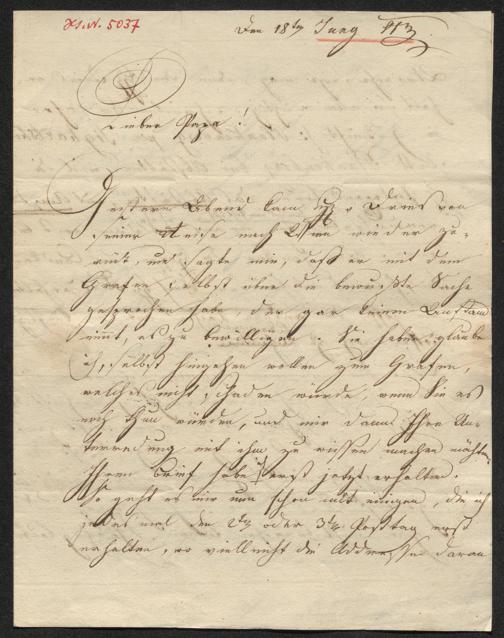 Hs. N. 5037
Den 18ten Juny
Lieber Papa!
Gestern Abend kam H. v Dries von
seiner Reise nach wieder zu-
rück, und sagte mir, daß er mit dem
Grafen selbst über die bewußte Sache
gesprochen habe, der gar keinen Anstand
nimmt, es zu bewilligen. Sie haben glaube
ich, selbst hingehen wollen zum Grafen,
welches nicht schaden würde, wenn Sie es
noch thun würden, und mir dann Ihre Un-
terredung mit ihm zu wissen machen möchten,
Ihren Brief habe ich erst jetzt erhalten.
So geht es mir nun schon mit einigen, die ich
jedes mal den 2ten oder 3ten Posttag erst
erhalten, wo vielleicht die Addresse daran